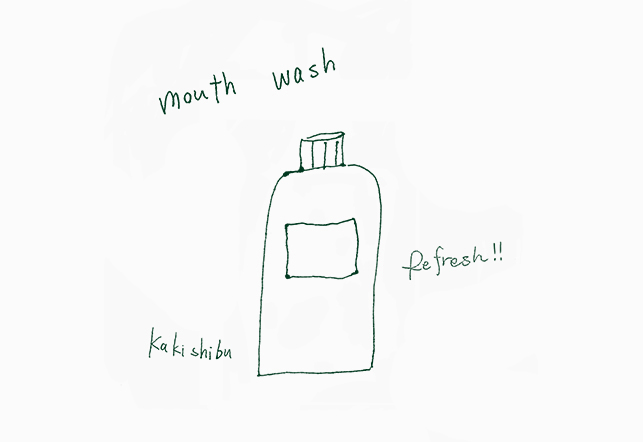 mouth wash
Refresh!!
Kakishibu